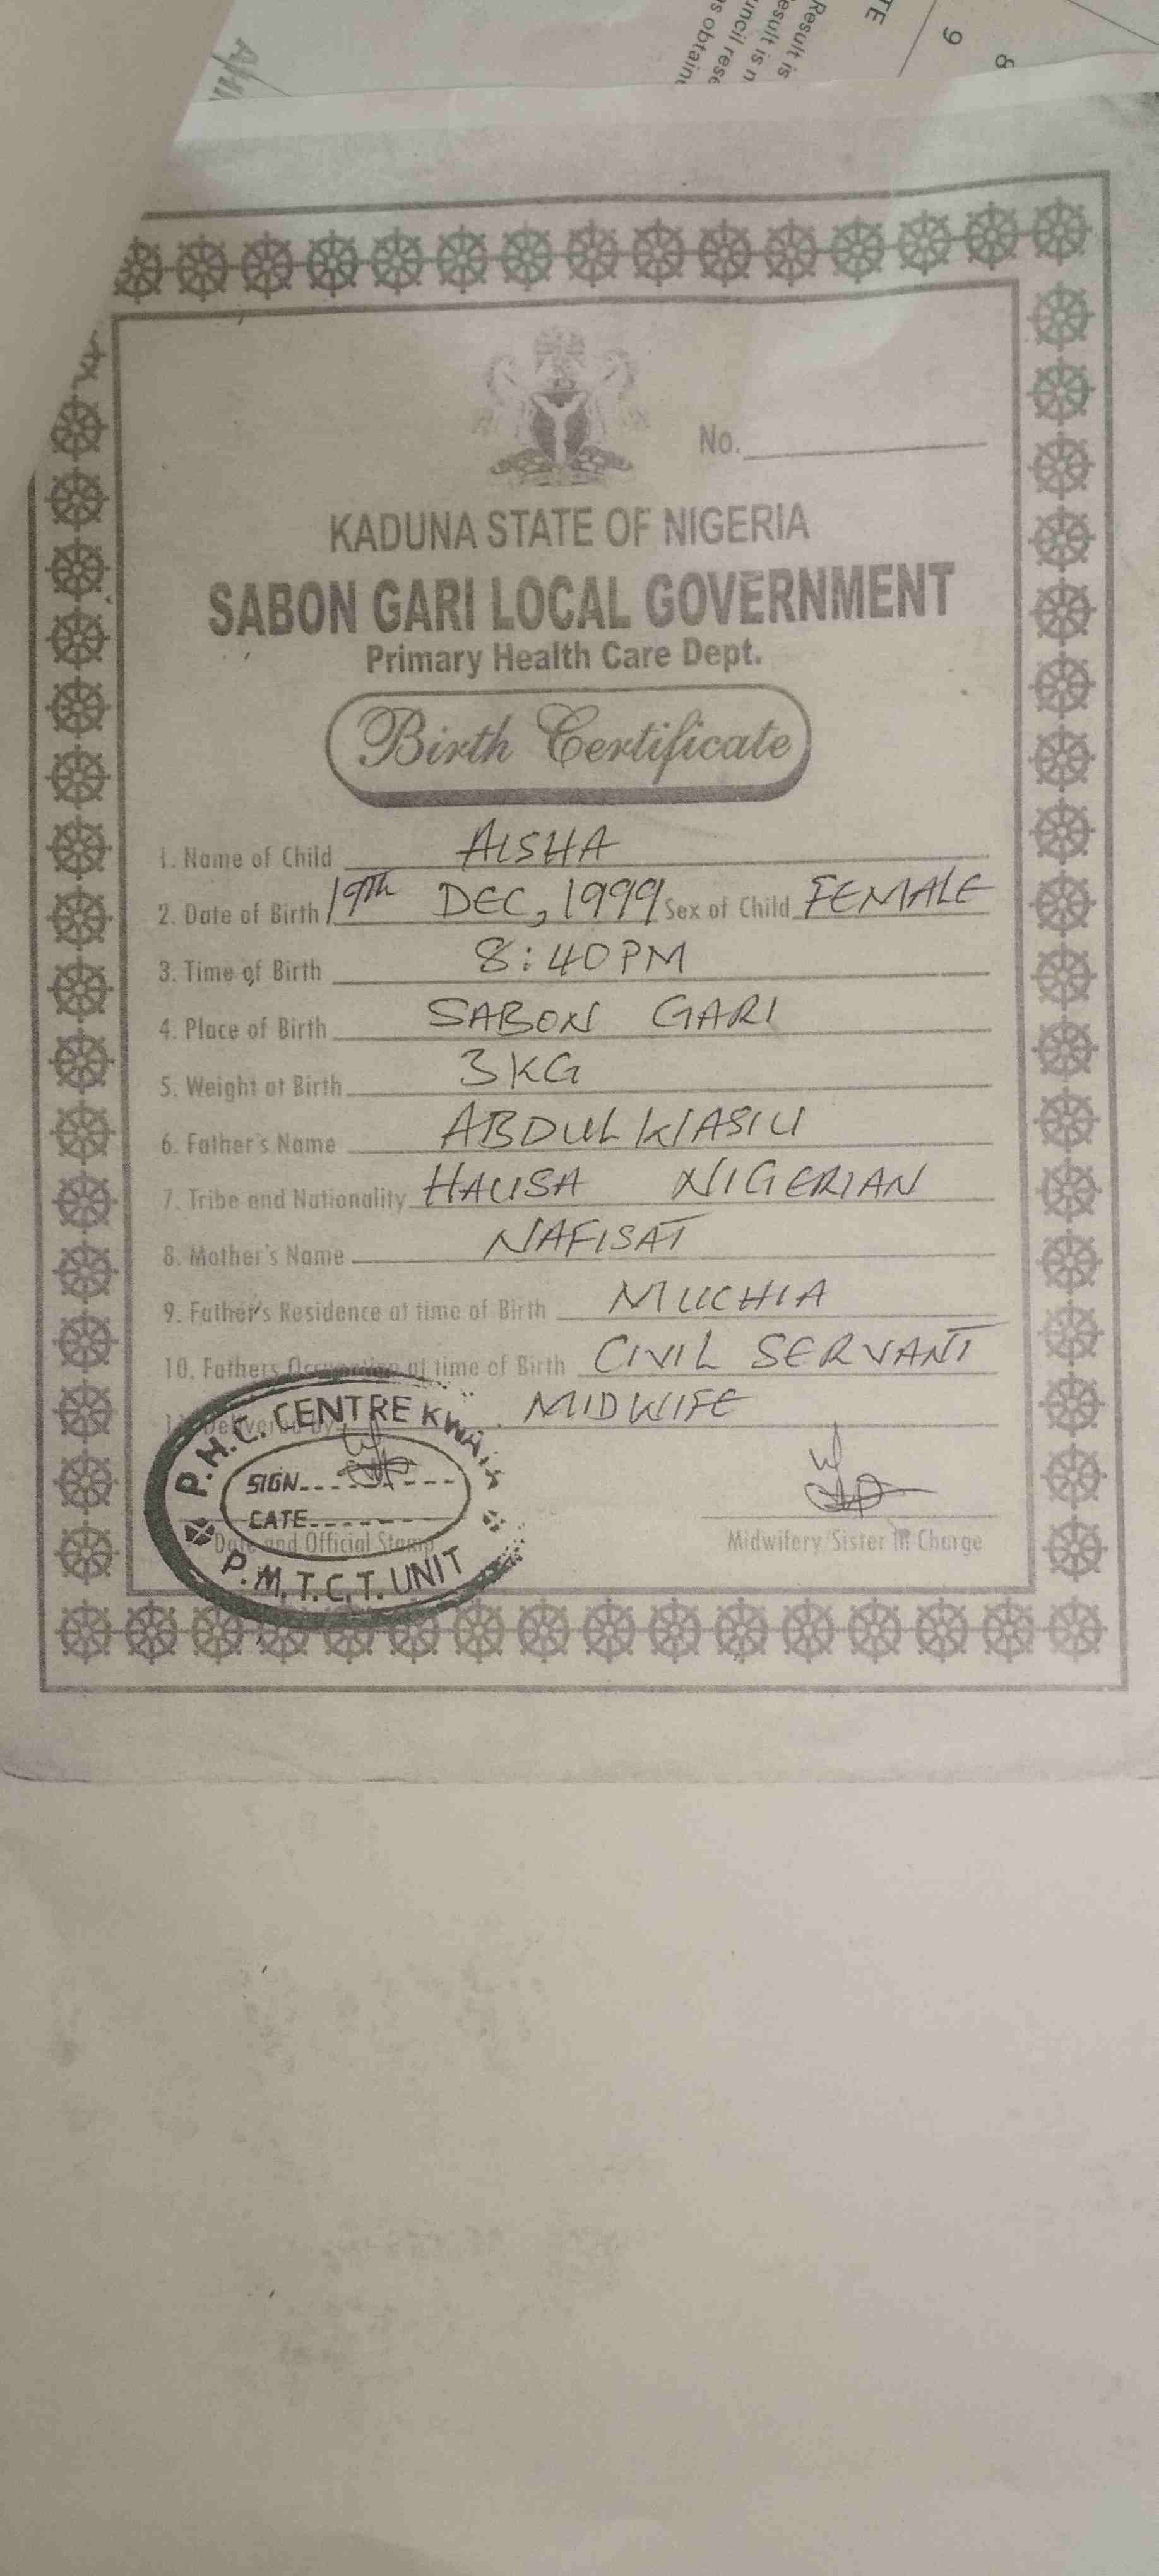 Result is
esult is n
uncil rese
s obtain
TE
9
8
No.
KADUNA STATE OF NIGERIA
SABON GARI LOCAL GOVERNMENT
Primary Health Care Dept.
Birth Certificate
1. Name of Child AISHA
2. Date of Birth 19th DEC, 1999 Sex of Child FEMALE
3. Time of Birth 8:40PM
4. Place of Birth SABON GARI
5. Weight at Birth 3KG
6. Father's Name ABDULWASIU
7. Tribe and Nationality HAUSA NIGERIAN
8. Mother's Name NAFISAT
9. Father's Residence at time of Birth MUCHIA
10. Fathers Occupation at time of Birth CIVIL SERVANT
11. Delivered by MIDWIFE
P.H.C. CENTRE
SIGN
DATE
P.M.T.C.T. UNIT
Date and Official Stamp
Midwifery/Sister in Charge